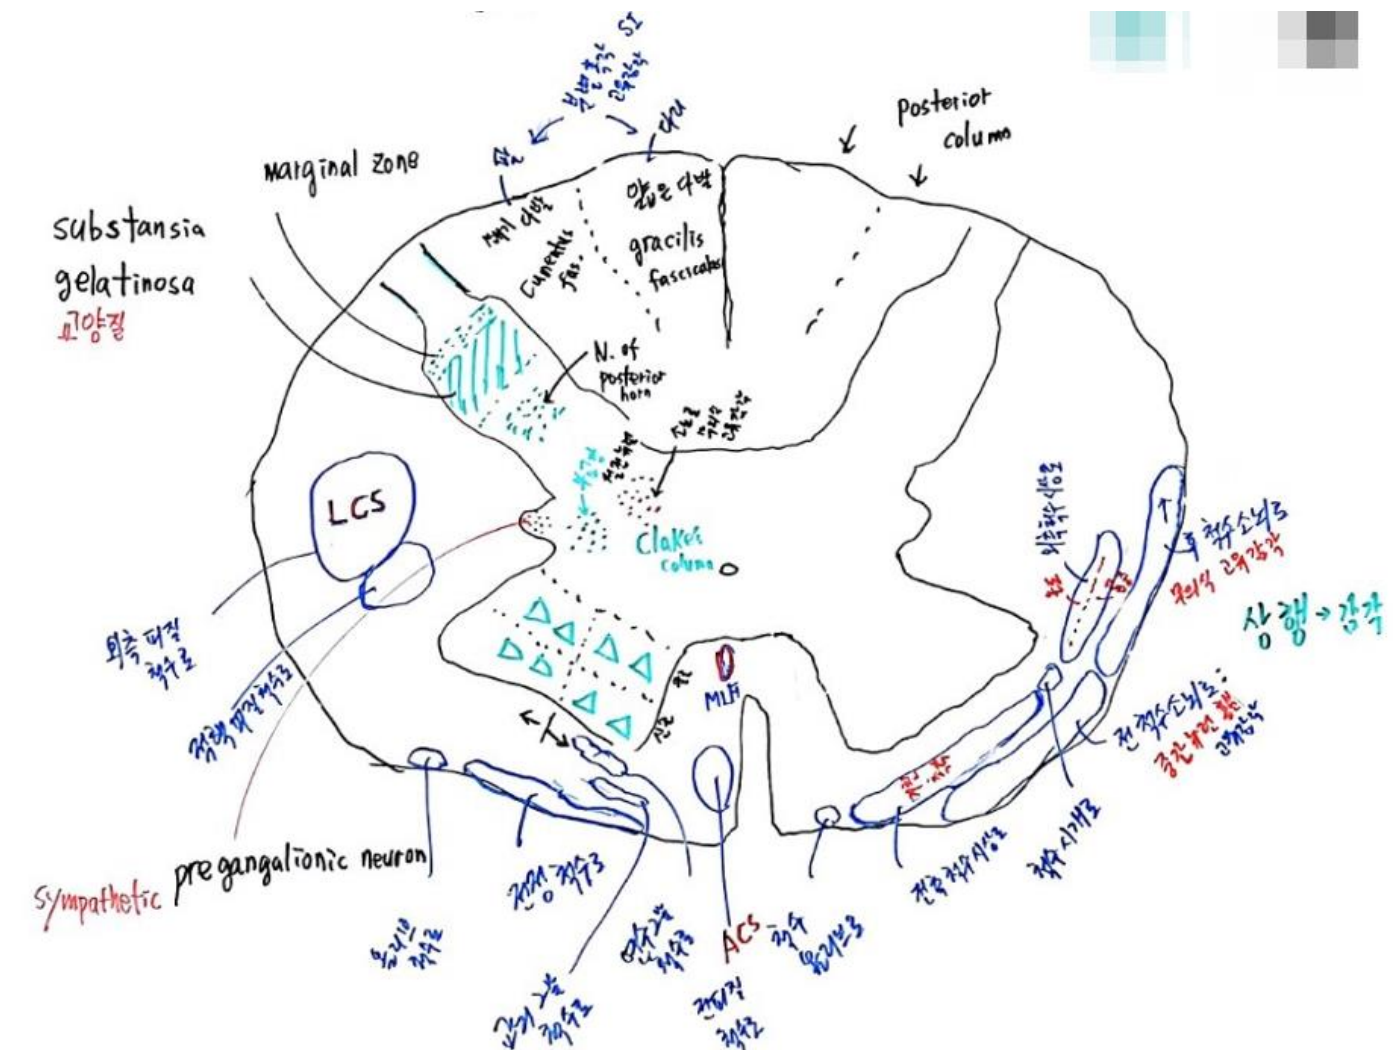 SI
분별촉각
고유감각
팔
다리
posterior
column
marginal zone
substansia
gelatinosa
교양질
쐐기 다발
Cuneatus
fas.
얇은 다발
gracilis
fasciculus
N. of
posterior
horn
Clake's
column
LCS
외측 피질
척수로
적핵 피질척수로
sympathetic
pregangalionic neuron
MLF
ACS
올리브
척수로
전정척수로
척수로
전피질
척수로
척수
올리브로
전측척수시상로
척수시개로
외측척수시상로
후 척수소뇌로
무의식 고유감각
상행→감각
전 척수소뇌로:
중간뉴런
고유감각